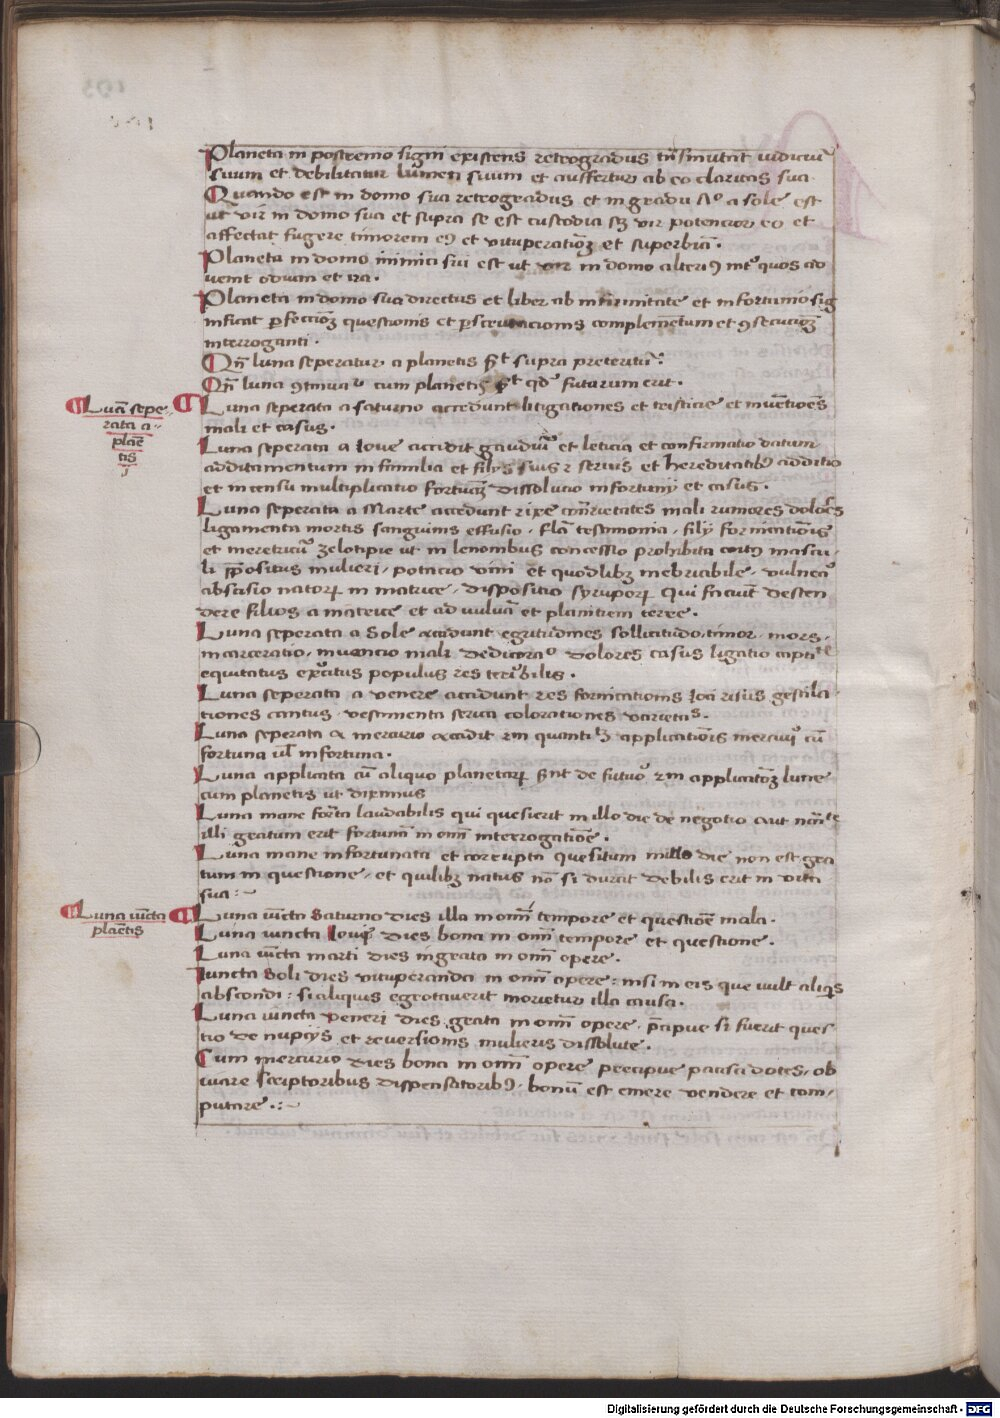 Planeta in postremo signi existens retrogradus tn̄smutat iudiciū
suum et debilitatur lumen suum et auffertur ab eo claritas sua
Quando est in domo sua retrogradus et in gradu a sole est
ut vir in domo sua et supra se est custodia scꝫ vir potencior eo et
affectat fugere timorem eꝰ et vituperatiōꝫ et superbiā.
Planeta in domo inimici sui est ut vir in domo alteriꝰ int quos ad
uenit odium et ira.
Planeta in domo sua directus et liber ab infirmitate et infortunio sig
nificat ꝑfeccioꝫ questionis et complem̄tum et ꝯsecucioꝫ
interroganti.
Qn̄ luna seperatur a planetis supra preteritū.
Qn̄ luna cum planetis qd futurum erit.
Lūa sepe
rata a
plāe
tis
Luna seperata a saturno accedunt litigationes et tristicie et inuētioēs
mali et casus.
Luna seperata a Ioue accidit gaudiū et leticia et confirmatio datum
additamentum in familia et filijs suis ⁊ seruis et hereditatibꝰ additio
et in censu multiplicatio dissolucio infortunij et casus.
Luna seperata a Marte accedunt rixe mali rumores dolores
ligamenta mortis sanguinis effusio. testimonia. filij fornicatiōis
et meretricū zelotipie ut in lenonibus concessio prohibita coitꝰ mascu
li mulieri. potacio vini et quodlibꝫ inebriabile. vulnera
abscisio natoꝝ in matrice. dispositio syrupoꝝ qui faciūt descen
dere filios a matrice et ad vuluā et planitiem terre.
Luna seperata a Sole accidunt egritudines sollicitudo, timor. mors.
incarceratio. inuencio mali dolores casus ligatio
equitatus exercitus populus res terribilis.
Luna seperata a venere accidunt res fornicationis ioci risus gesticla
tiones cantus. vestimenta serica colorationes
Luna seperata a mercurio accidit quantitꝫ applicatiōis mercurij cū
fortuna ul infortuna.
Luna applicata cū aliquo planetaꝝ de futuro applicatōꝫ lune
cum planetis ut diximus
Luna mane laudabilis qui quesierit in illo die de negotio aut
illi gratum erit in om̄i interrogatiōe.
Luna mane infortunata et corrupta quesitum in illo die non est gra
tum in questione. et quilibꝫ natus nō si durat debilis erit in vita
sua
Luna iūcta
plaētis
Luna iūcta Saturno dies illa in om̄i tempore et questiōe mala.
Luna iuncta Ioui dies bona in om̄i tempore et questione.
Luna iūcta marti dies ingrata in om̄i opere.
Iuncta Soli dies vituperanda in om̄i opere. nisi in eis que uult
abscondi: si aliquis egrotauerit morietur illa causa.
Luna iuncta veneri dies grata in om̄i opere. p̄cipue si fuerit ques
tio de nupcijs et reuersionis mulieris dissolute.
Cum mercurio dies bona in om̄i opere precipue ob
uiare scriptoribus dispensatoribꝰ. bonū est emere vendere et com
putare.
Digitalisierung gefördert durch die Deutsche Forschungsgemeinschaft - DFG